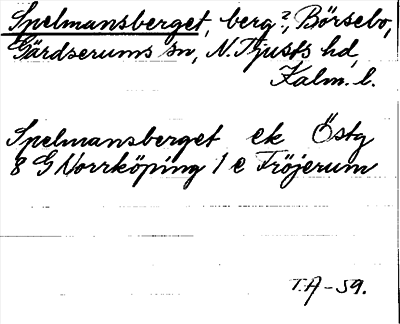 Spelmansberget, berg?, Börsebo,
Gärdserums sn, N. Tjusts hd,
Kalm. l.
Spelmansberget ek Östg
8 G Norrköping 1 e Fröjerum
T.A-59.